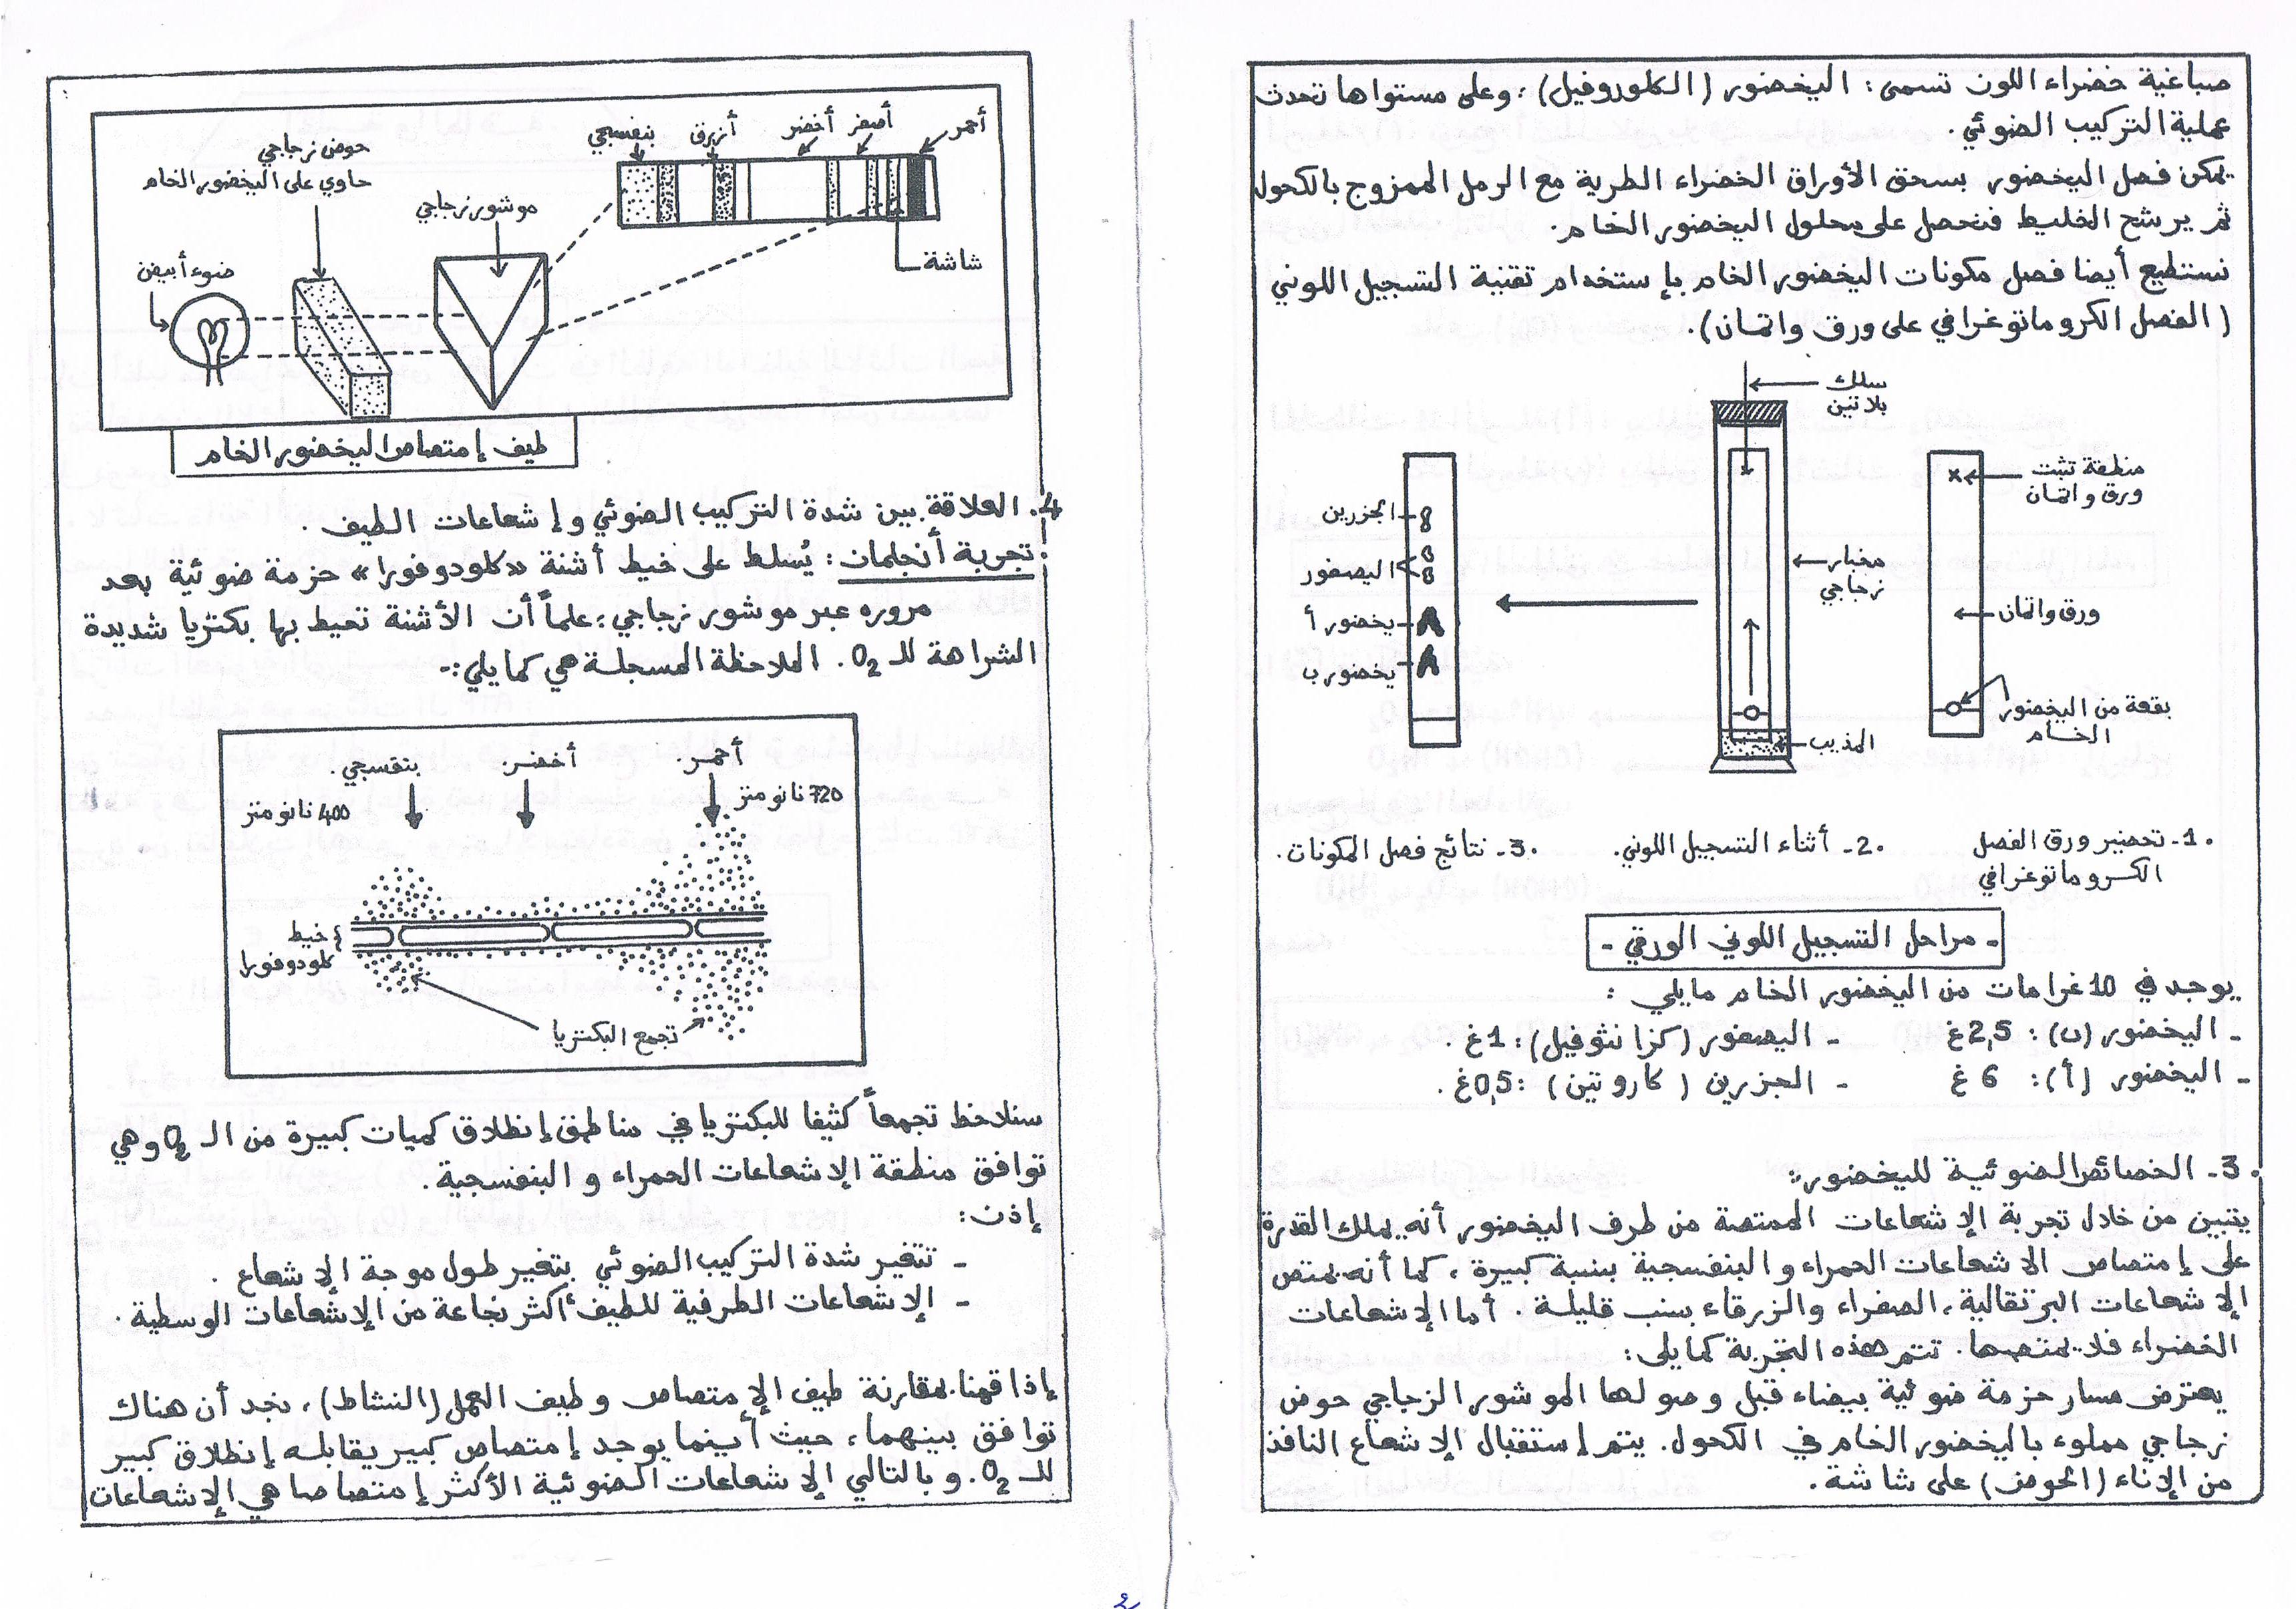 صباغية خضراء اللون تسمى: اليخضور (الكلوروفيل)، وعلى مستواها تحدث
عملية التركيب الضوئي.
يمكن فصل اليخضور بسحق الأوراق الخضراء الطرية مع الرمل الممزوج بالكحول
ثم يرشح الخليط فنحصل على محلول اليخضور الخام.
نستطيع أيضا فصل مكونات اليخضور الخام بإستخدام تقنية التسجيل اللوني
(الفصل الكروماتوغرافي على ورق واتمان).
سلك
بلاتين
منطقة تثبت
ورق واتمان
مخبار
زجاجي
ورق واتمان
بقعة من اليخضور
الخام
المذيب
الجزرين
اليصفور
يخضور أ
يخضور ب
1- تحضير ورق الفصل
الكروماتوغرافي
2- أثناء التسجيل اللوني.
3- نتائج فصل المكونات.
- مراحل التسجيل اللوني الورقي -
يوجد في 10 غرامات من اليخضور الخام مايلي :
- اليخضور (ب): 2,5غ - اليصفور (كزانثوفيل): 1غ .
- اليخضور (أ): 6 غ - الجزرين (كاروتين) : 0,5غ .
3- الخصائص الضوئية لليخضور:
يتبين من خلال تجربة الإشعاعات الممتصة من طرف اليخضور أنه يملك القدرة
على إمتصاص الاشعاعات الحمراء و البنفسجية بنسبة كبيرة، كما أنه يمتص
الإشعاعات البرتقالية، الصفراء والزرقاء بسنب قليلة. أما الإشعاعات
الخضراء فلا يمتصها. تتم هذه التجربة كمايلي:
يعترض مسار حزمة ضوئية بيضاء قبل وصولها الموشور الزجاجي حوض
زجاجي مملوء باليخضور الخام في الكحول. يتم إستقبال الإشعاع النافذ
من الإناء (الحوض) على شاشة.
أحمر
أصفر
أخضر
أزرق
بنفسجي
شاشة
حوض زجاجي
حاوي على اليخضور الخام
موشور زجاجي
ضوء أبيض
طيف إمتصاص اليخضور الخام
4. العلاقة بين شدة التركيب الضوئي وإشعاعات الطيف .
تجربة أنجلمان: يُسلط على خيط أشنة «كلودوفورا» حزمة ضوئية بعد
مروره عبر موشور زجاجي؛ علماً أن الأشنة تحيط بها بكتريا شديدة
الشراهة للـ O2. الملاحظة المسجلة هي كمايلي:-
أحمر.
720 نانومتر
أخضر.
بنفسجي.
400 نانومتر
خيط
كلودوفورا
تجمع البكتريا
سنلاحظ تجمعاً كثيفا للبكتريا في مناطق إنطلاق كميات كبيرة من الـ O2 وهي
توافق منطقة الإشعاعات الحمراء و البنفسجية.
إذن:
- تتغير شدة التركيب الضوئي بتغير طول موجة الإشعاع .
- الإشعاعات الطرفية للطيف أكثر نجاعة من الإشعاعات الوسطية.
إذا قمنا بمقارنة طيف الإمتصاص وطيف العمل (النشاط)، نجد أن هناك
توافق بينهما، حيث أينما يوجد إمتصاص كبير يقابله إنطلاق كبير
للـ O2. وبالتالي الإشعاعات الضوئية الأكثر إمتصاصا هي الإشعاعات
2